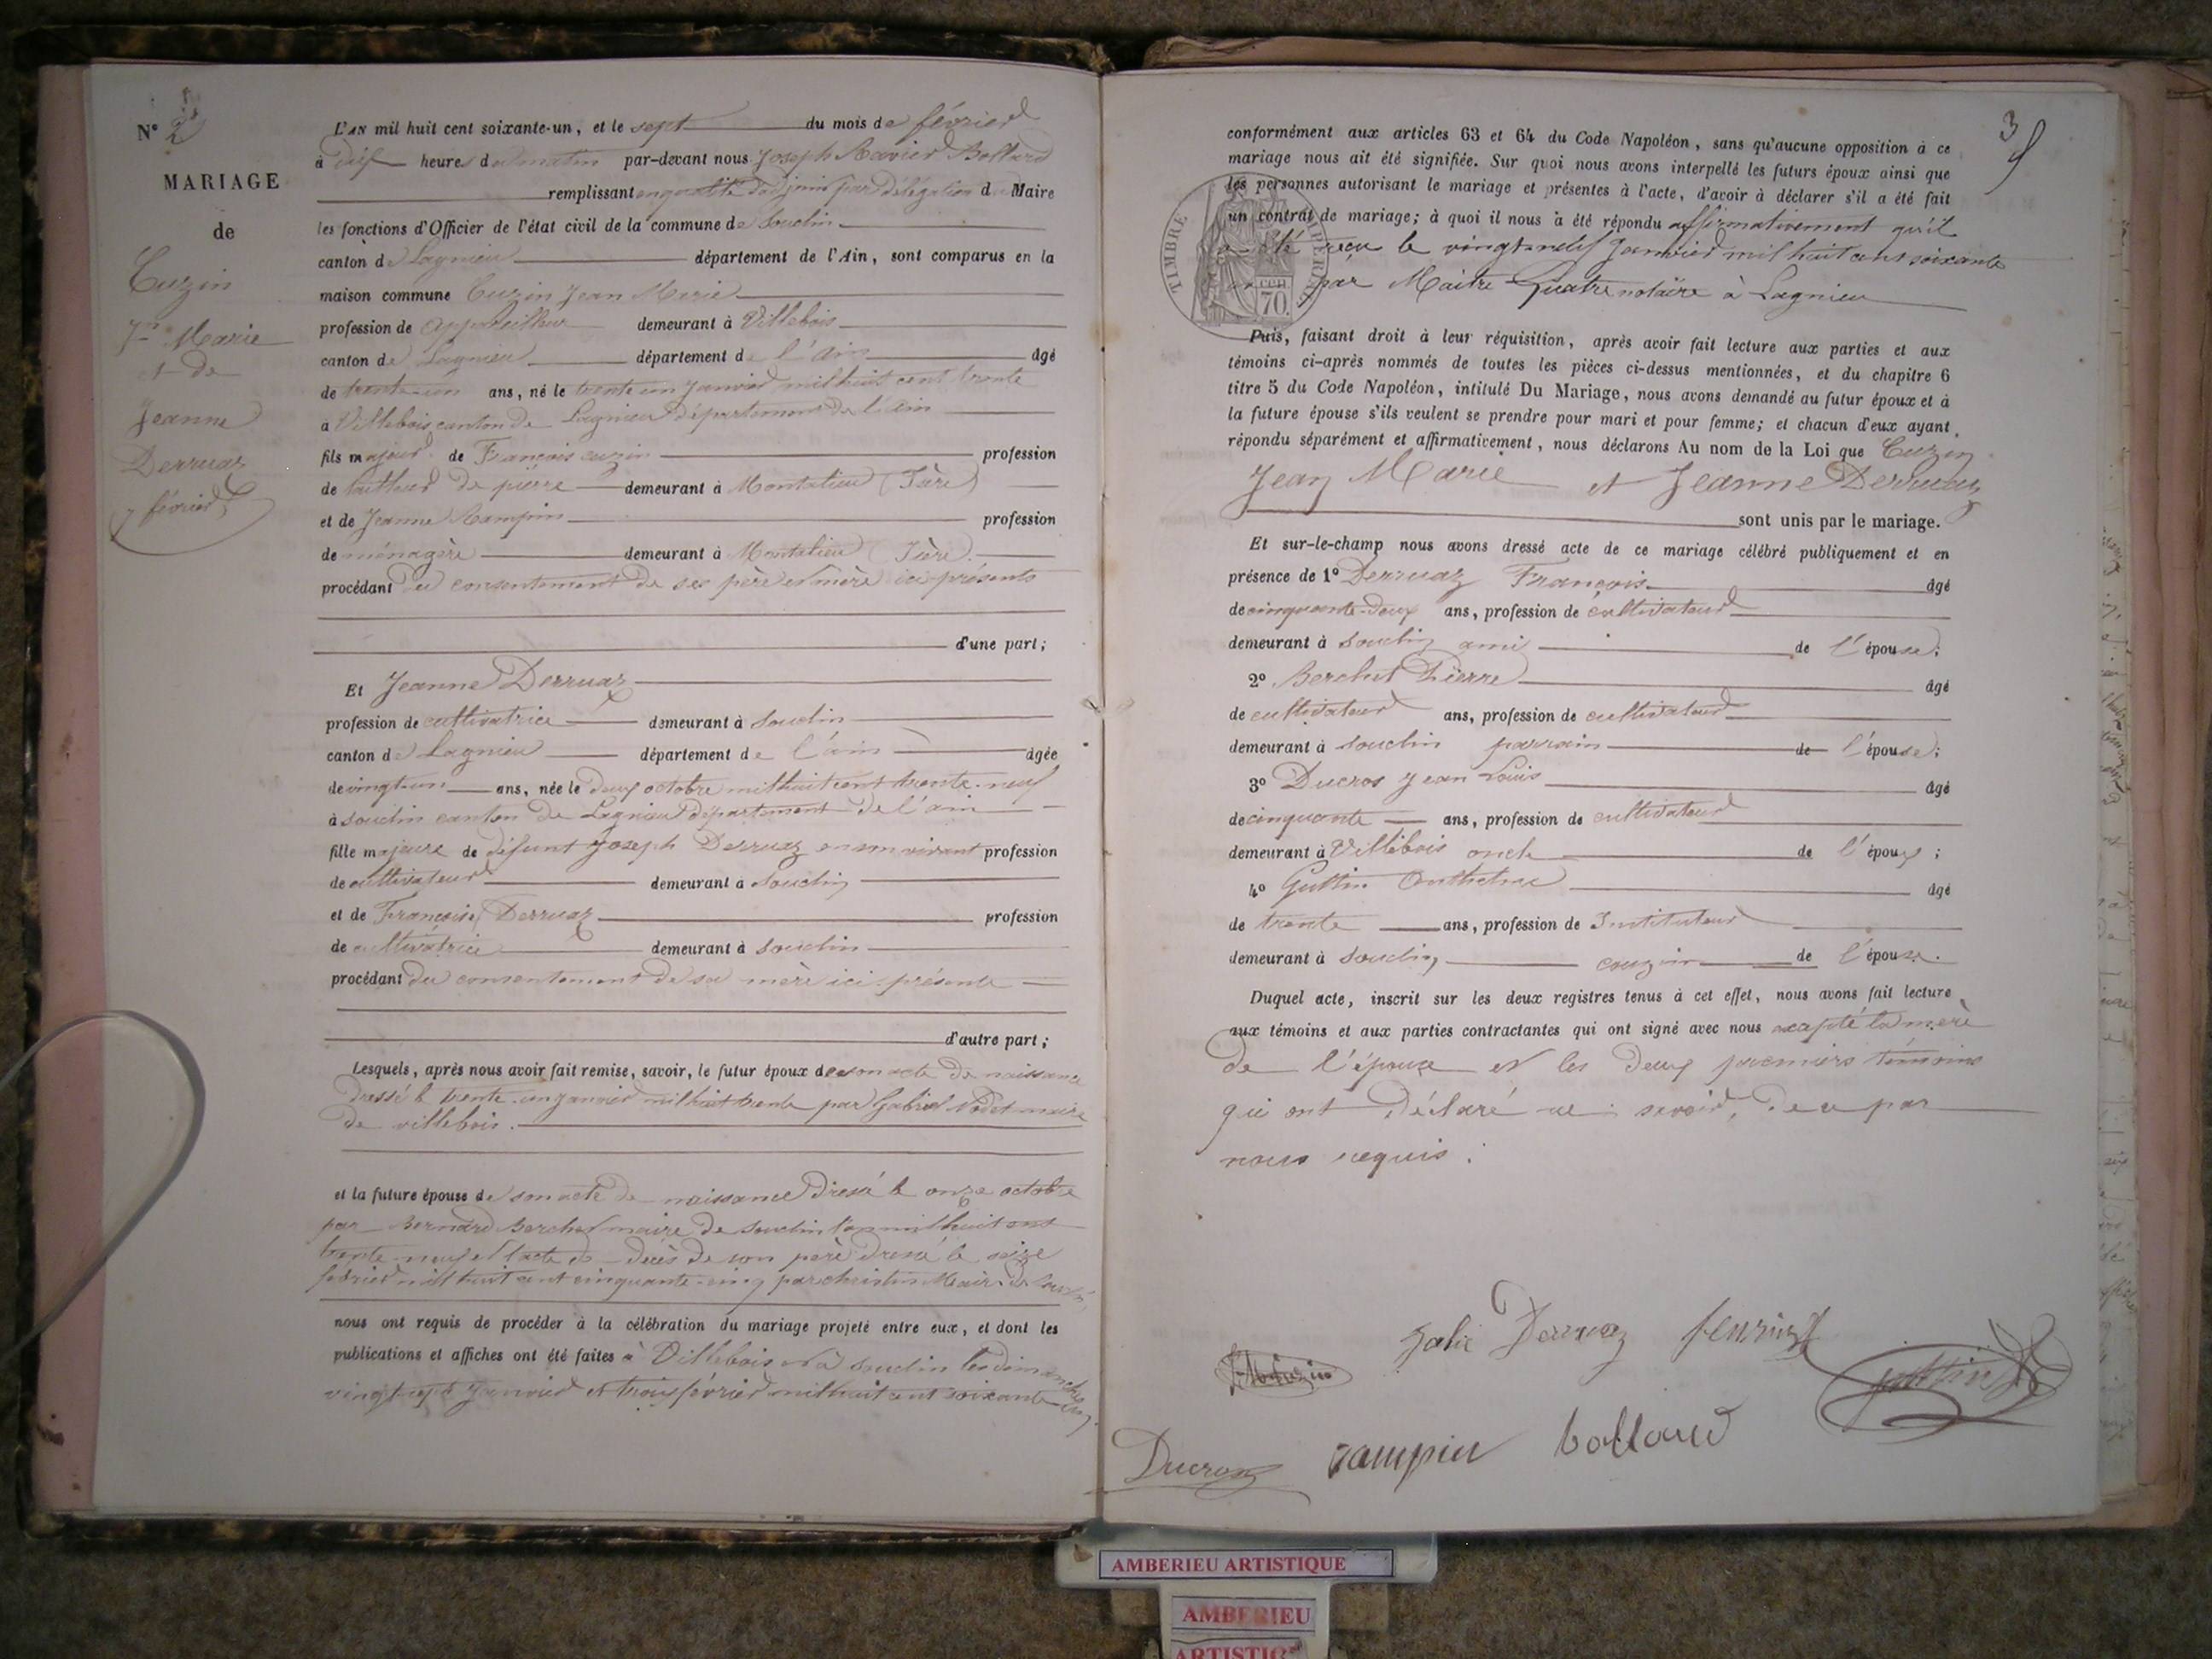 N° 2
MARIAGE
de
Cuzin
Jn Marie
et de
Jeanne
Derruaz
7 février
L'AN mil huit cent soixante-un, et le sept du mois de février
à dix heures du matin par-devant nous Joseph Xavier Bollard
remplissant en qualité d'adjoint par délégation du Maire
les fonctions d'Officier de l'état civil de la commune de Souclin
canton de Lagnieu département de l'Ain, sont comparus en la
maison commune Cuzin Jean Marie
profession de appareilleur demeurant à Villebois
canton de Lagnieu département de l'Ain âgé
de trente-un ans, né le trente un janvier mil huit cent trente
à Villebois canton de Lagnieu département de l'ain
fils majeur de François cuzin profession
de tailleur de pierre demeurant à Montalieu (Isère)
et de Jeanne Rampin profession
de ménagère demeurant à Montalieu (Isère)
procédant du consentement de ses père et mère ici présents
d'une part;
Et Jeanne Derruaz
profession de cultivatrice demeurant à Souclin
canton de Lagnieu département de l'ain âgée
de vingt-un ans, née le deux octobre mil huit cent trente-neuf
à Souclin canton de Lagnieu département de l'ain
fille majeure de défunt Joseph Derruaz en son vivant profession
de cultivateur demeurant à Souclin
et de Françoise Derruaz profession
de cultivatrice demeurant à Souclin
procédant du consentement de sa mère ici présente
d'autre part;
Lesquels, après nous avoir fait remise, savoir, le futur époux de son acte de naissance
dressé le trente-un janvier mil huit trente par Gabriel Vodet maire
de villebois.
et la future épouse de son acte de naissance dressé le onze octobre
par Bernard Berchet maire de Souclin l'an mil huit cent
trente-neuf et l'acte de décès de son père dressé le seize
février mil huit cent cinquante-cinq par Christin Maire de Souclin
nous ont requis de procéder à la célébration du mariage projeté entre eux, et dont les
publications et affiches ont été faites à Villebois et à Souclin les dimanches
vingt-sept janvier et trois février mil huit cent soixante-un
3
conformément aux articles 63 et 64 du Code Napoléon, sans qu'aucune opposition à ce
mariage nous ait été signifiée. Sur quoi nous avons interpellé les futurs époux ainsi que
les personnes autorisant le mariage et présentes à l'acte, d'avoir à déclarer s'il a été fait
un contrat de mariage; à quoi il nous a été répondu affirmativement qu'il
a été reçu le vingt-neuf janvier mil huit cent soixante
un par Maître Quatre notaire à Lagnieu
TIMBRE IMPERIAL
CEN 70.
Puis, faisant droit à leur réquisition, après avoir fait lecture aux parties et aux
témoins ci-après nommés de toutes les pièces ci-dessus mentionnées, et du chapitre 6
titre 5 du Code Napoléon, intitulé Du Mariage, nous avons demandé au futur époux et à
la future épouse s'ils veulent se prendre pour mari et pour femme; et chacun d'eux ayant
répondu séparément et affirmativement, nous déclarons Au nom de la Loi que Cuzin
Jean Marie et Jeanne Derruaz
sont unis par le mariage.
Et sur-le-champ nous avons dressé acte de ce mariage célébré publiquement et en
présence de 1° Derruaz François âgé
de cinquante-deux ans, profession de cultivateur
demeurant à Souclin ami de l'épouse;
2° Berchet Pierre âgé
de cultivateur ans, profession de cultivateur
demeurant à Souclin parrain de l'épouse;
3° Ducros Jean Louis âgé
de cinquante ans, profession de cultivateur
demeurant à Villebois oncle de l'époux;
4° Guttin Anthelme âgé
de trente ans, profession de Instituteur
demeurant à Souclin couzin de l'épouse.
Duquel acte, inscrit sur les deux registres tenus à cet effet, nous avons fait lecture
aux témoins et aux parties contractantes qui ont signé avec nous excepté la mère
de l'épouse et les deux premiers témoins
qui ont déclaré ne savoir, de ce par
nous requis.
Derruaz
guttin
Ducros rampin bollard
AMBERIEU ARTISTIQUE
AMBERIEU
ARTISTIQUE